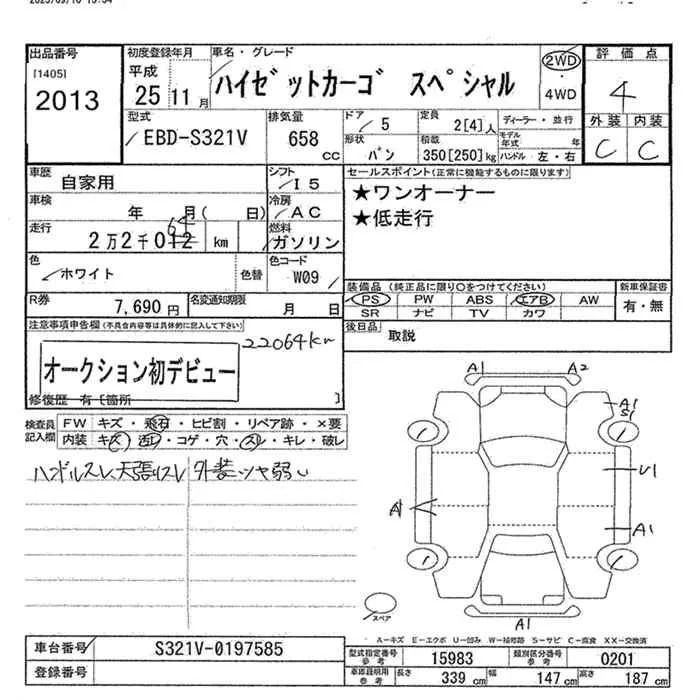 出品番号
[1405]
2013
初度登録年月
平成
25 11 月
車名・グレード
ハイゼットカーゴ スペシャル
2WD
・
4WD
評価点
4
外装 内装
C C
型式
EBD-S321V
排気量
658 cc
ドア
5
形状
バン
定員
2[4]人
積載
350[250]kg
ディーラー・並行
モデル年式 年
ハンドル 左・右
車歴
自家用
シフト
I5
セールスポイント(正常に機能するものに限ります)
★ワンオーナー
★低走行
車検
年 月( 日)
冷房
AC
走行
2万2千012 km
64
燃料
ガソリン
色
ホワイト
色替
色コード
W09
装備品 (純正品に限り○をつけてください)
PS PW ABS エアB AW
SR ナビ TV カワ
新車保証書
有・無
R券
7,690 円
名変通知期限
月 日
後日品
取説
注意事項申告欄(不具合内容等は具体的に記入して下さい)
22064km
オークション初デビュー
修復歴 有〔箇所 〕
検査員記入欄
FW キズ・飛石・ヒビ割・リペア跡・×要
内装 キズ・汚レ・コゲ・穴・スレ・キレ・破レ
ハンドルスレ、天張スレ 外装ツヤ弱い
A1 A2
A1
S1
U1
A1
A1
A1
スペア
A-キズ E-エクボ U-凹み W-補修跡 S-サビ C-腐食 XX-交換済
車台番号
S321V-0197585
登録番号
型式指定番号 参考
15983
類別区分番号 参考
0201
車庫証明用 参考
長さ 339 cm
幅 147 cm
高さ 187 cm